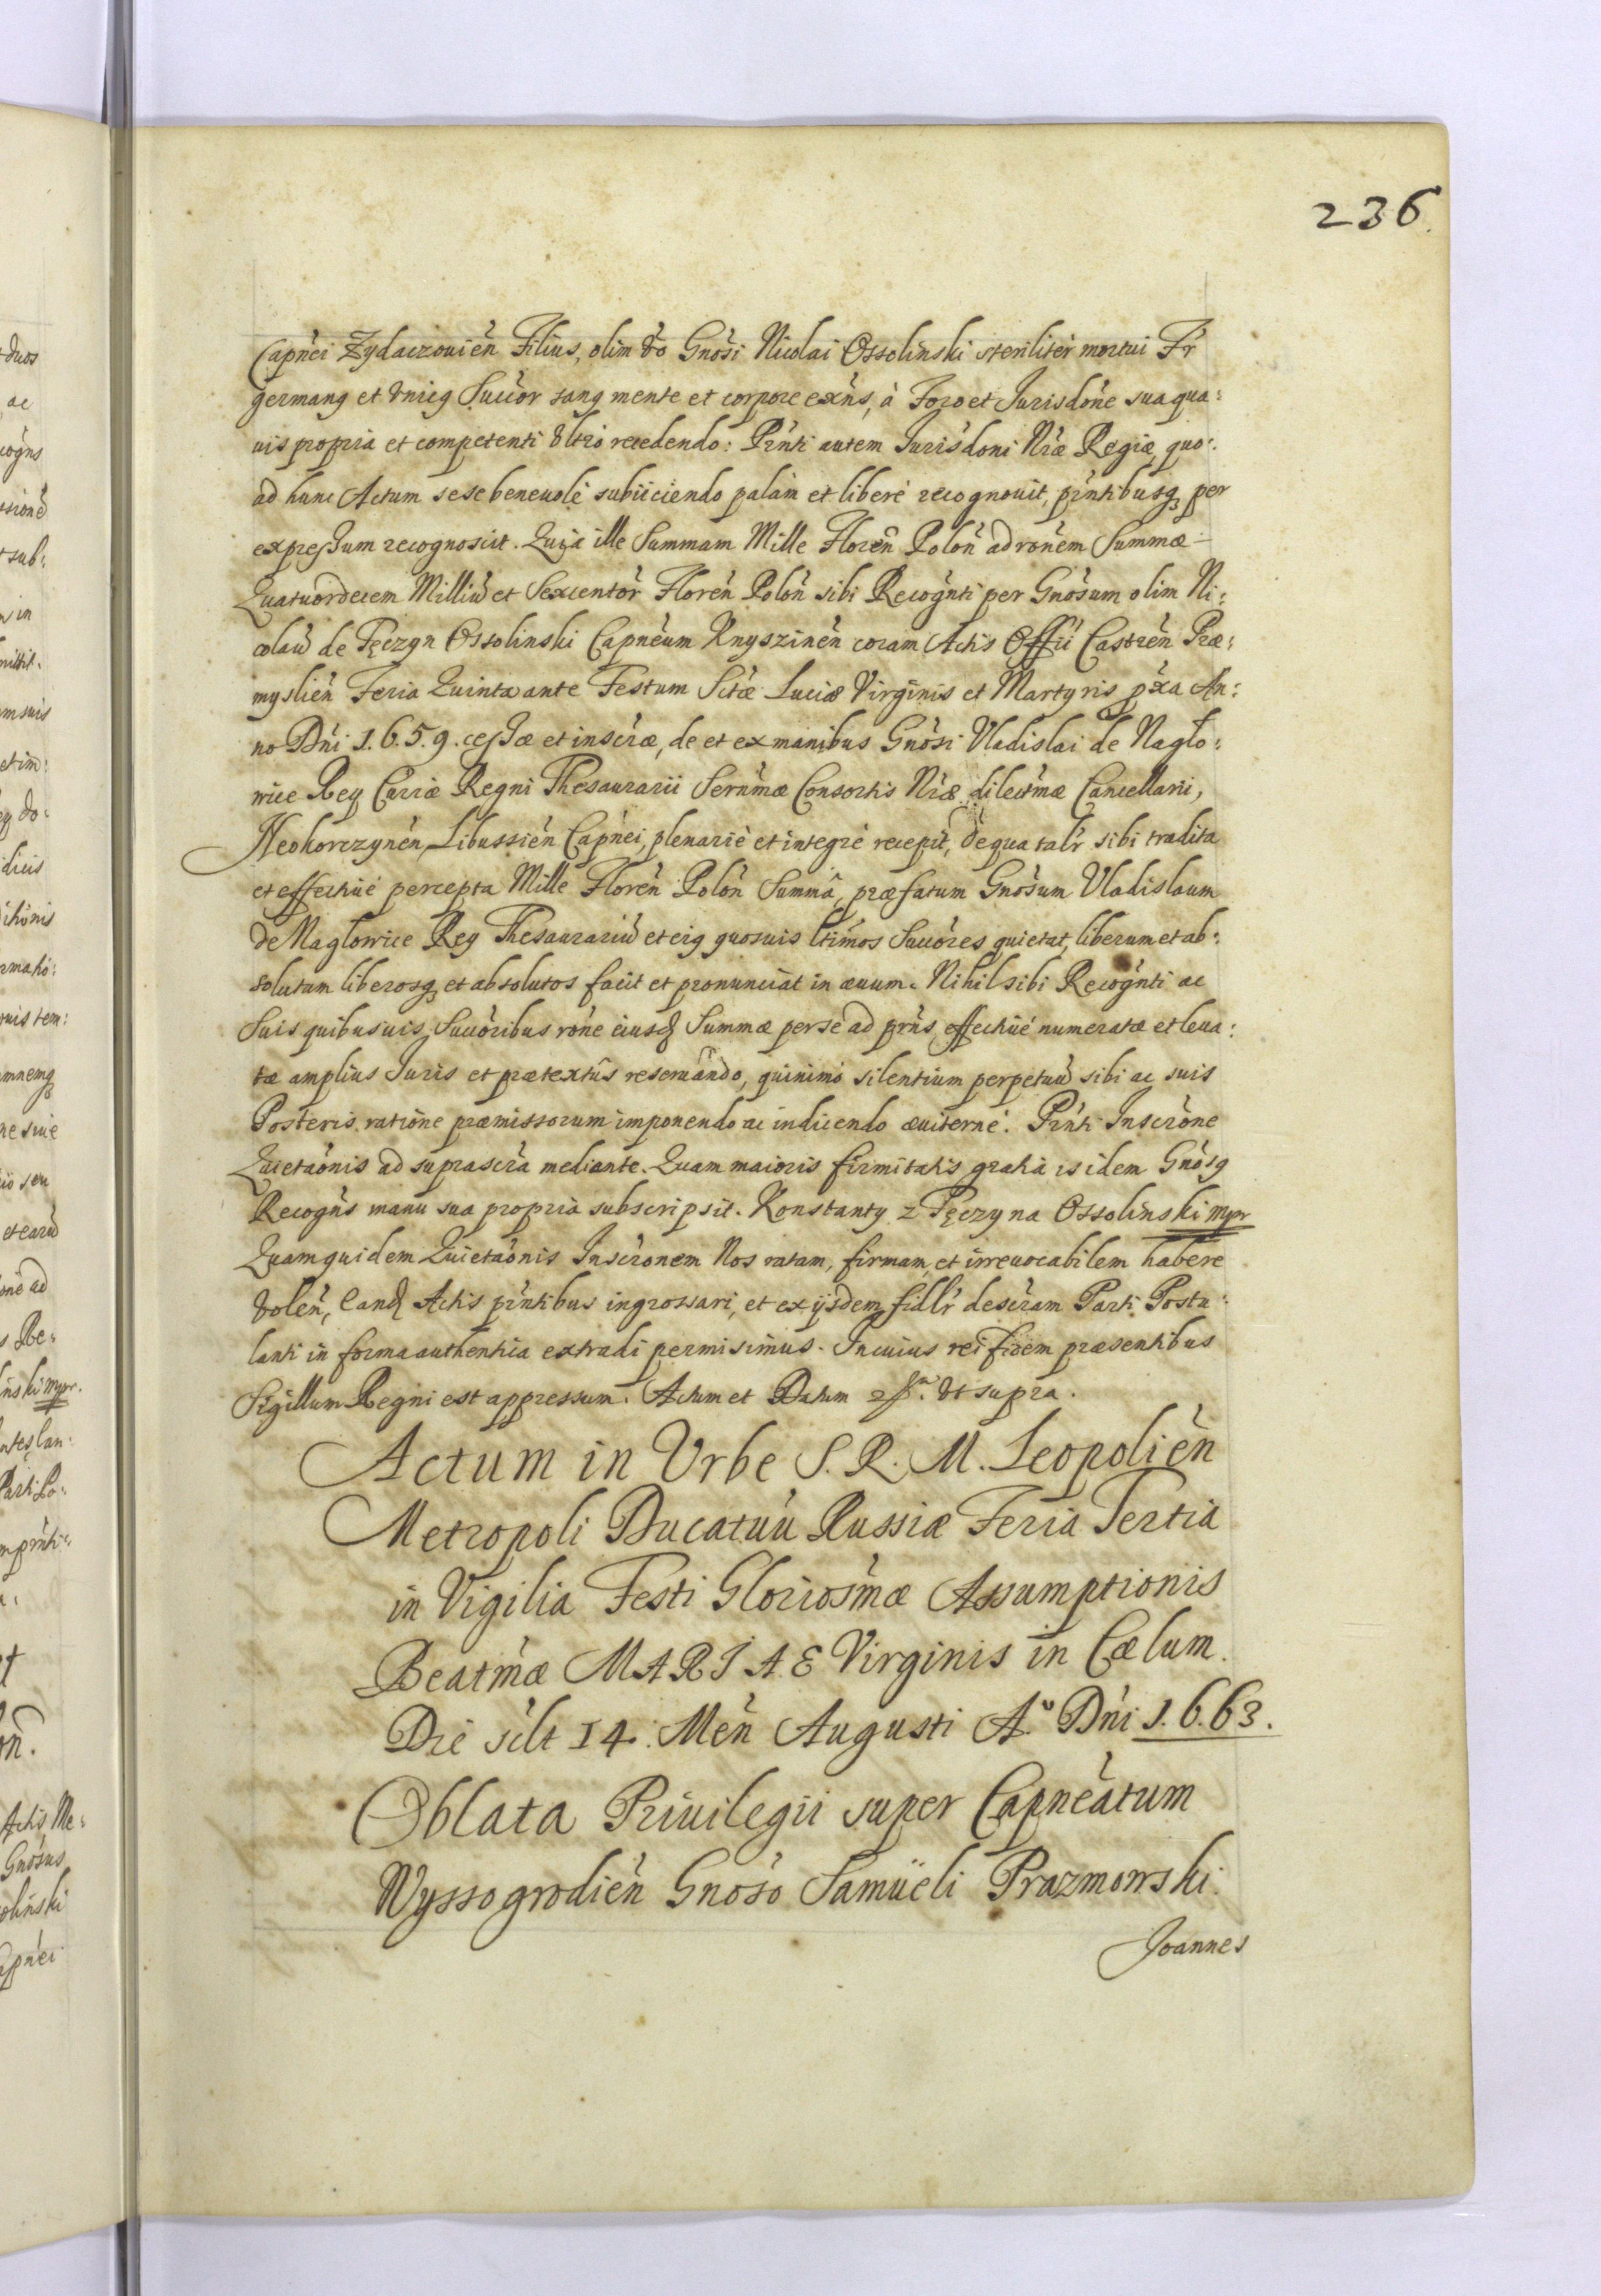 236.
Capnei Zydaczouien Filius, olim vo Gnosi Nicolai Ossolinski steriliter mortui Fr
germang et vnicg Succor sang mente et corpore exns, à Foro et Jurisdone sua qua:
uis propria et competenti vltro recedendo: Pnti autem Jurisdoni Nræ Regiæ, quo:
ad hunc Actum sese beneuole subiiciendo palam et libere recognouit, pntibusq per
expressum recognoscit. Quia ille Summam Mille Floren Polon ad ronem Summæ
Quatuordecem Milliu et Sexcentor Floren Polon sibi Recognti per Gnosum olim Ni:
colau de Tęczyn Ossolinski Capneum Knyszinen coram Actis Offii Castren Præ:
myslien Feria Quinta ante Festum Sctæ Luciæ Virginis et Martyris pxa An:
no Dni 1.6.5.9. cessæ et inscræ, de et ex manibus Gnosi Vladislai de Naglo:
wice Rey Curiæ Regni Thesaurarii Sernmæ Consortis Nræ dilectmæ Cancellarii,
Neokorczynen Libussien Capnei, plenarie et integre recepit, de qua talr sibi tradita
et effectiue percepta Mille Floren Polon Summâ, præfatum Gnosum Vladislaum
de Naglowice Rey Thesaurariu et eig quosuis ltimos Succores quietat, liberum et ab:
solutum liberosq et absolutos facit et pronunciat in æuum. Nihil sibi Recognti ac
Suis quibusuis Succoribus rone eiusd Summæ per se ad prns effectiue numeratæ et leua:
tæ amplius Juris et prætextûs reseruando, quinimo silentium perpetuu sibi ac suis
Posteris ratione præmissorum imponendo ac indicendo æuiterne. Pnti Inscrone
Quietaonis ad suprascra mediante. Quam maioris firmitatis gratia is idem Gnosg
Recogns manu sua propria subscripsit. Konstanty z Tęczyna Ossolinski mpr
Quam quidem Quietaonis Inscronem Nos ratam, firmam, et irreuocabilem habere
volen, eand Actis pntibus ingrossari, et ex ijsdem fidlr descram Parti Postu:
lanti in forma authentica extradi permisimus. In cuius rei fidem præsentibus
Sigillum Regni est appressum. Actum et Datum vt supra.
Actum in Vrbe S. R. M. Leopolien
Metropoli Ducatuu Russiæ Feria Tertia
in Vigilia Festi Gloriosmæ Assumptionis
Beatmæ MARIAE Virginis in Cælum.
Die sclt 14. Men Augusti A.o Dni 1.6.63.
Oblata Priuilegii super Capneatum
Wyssogrodien Gnoso Samüeli Prazmowski.
Joannes